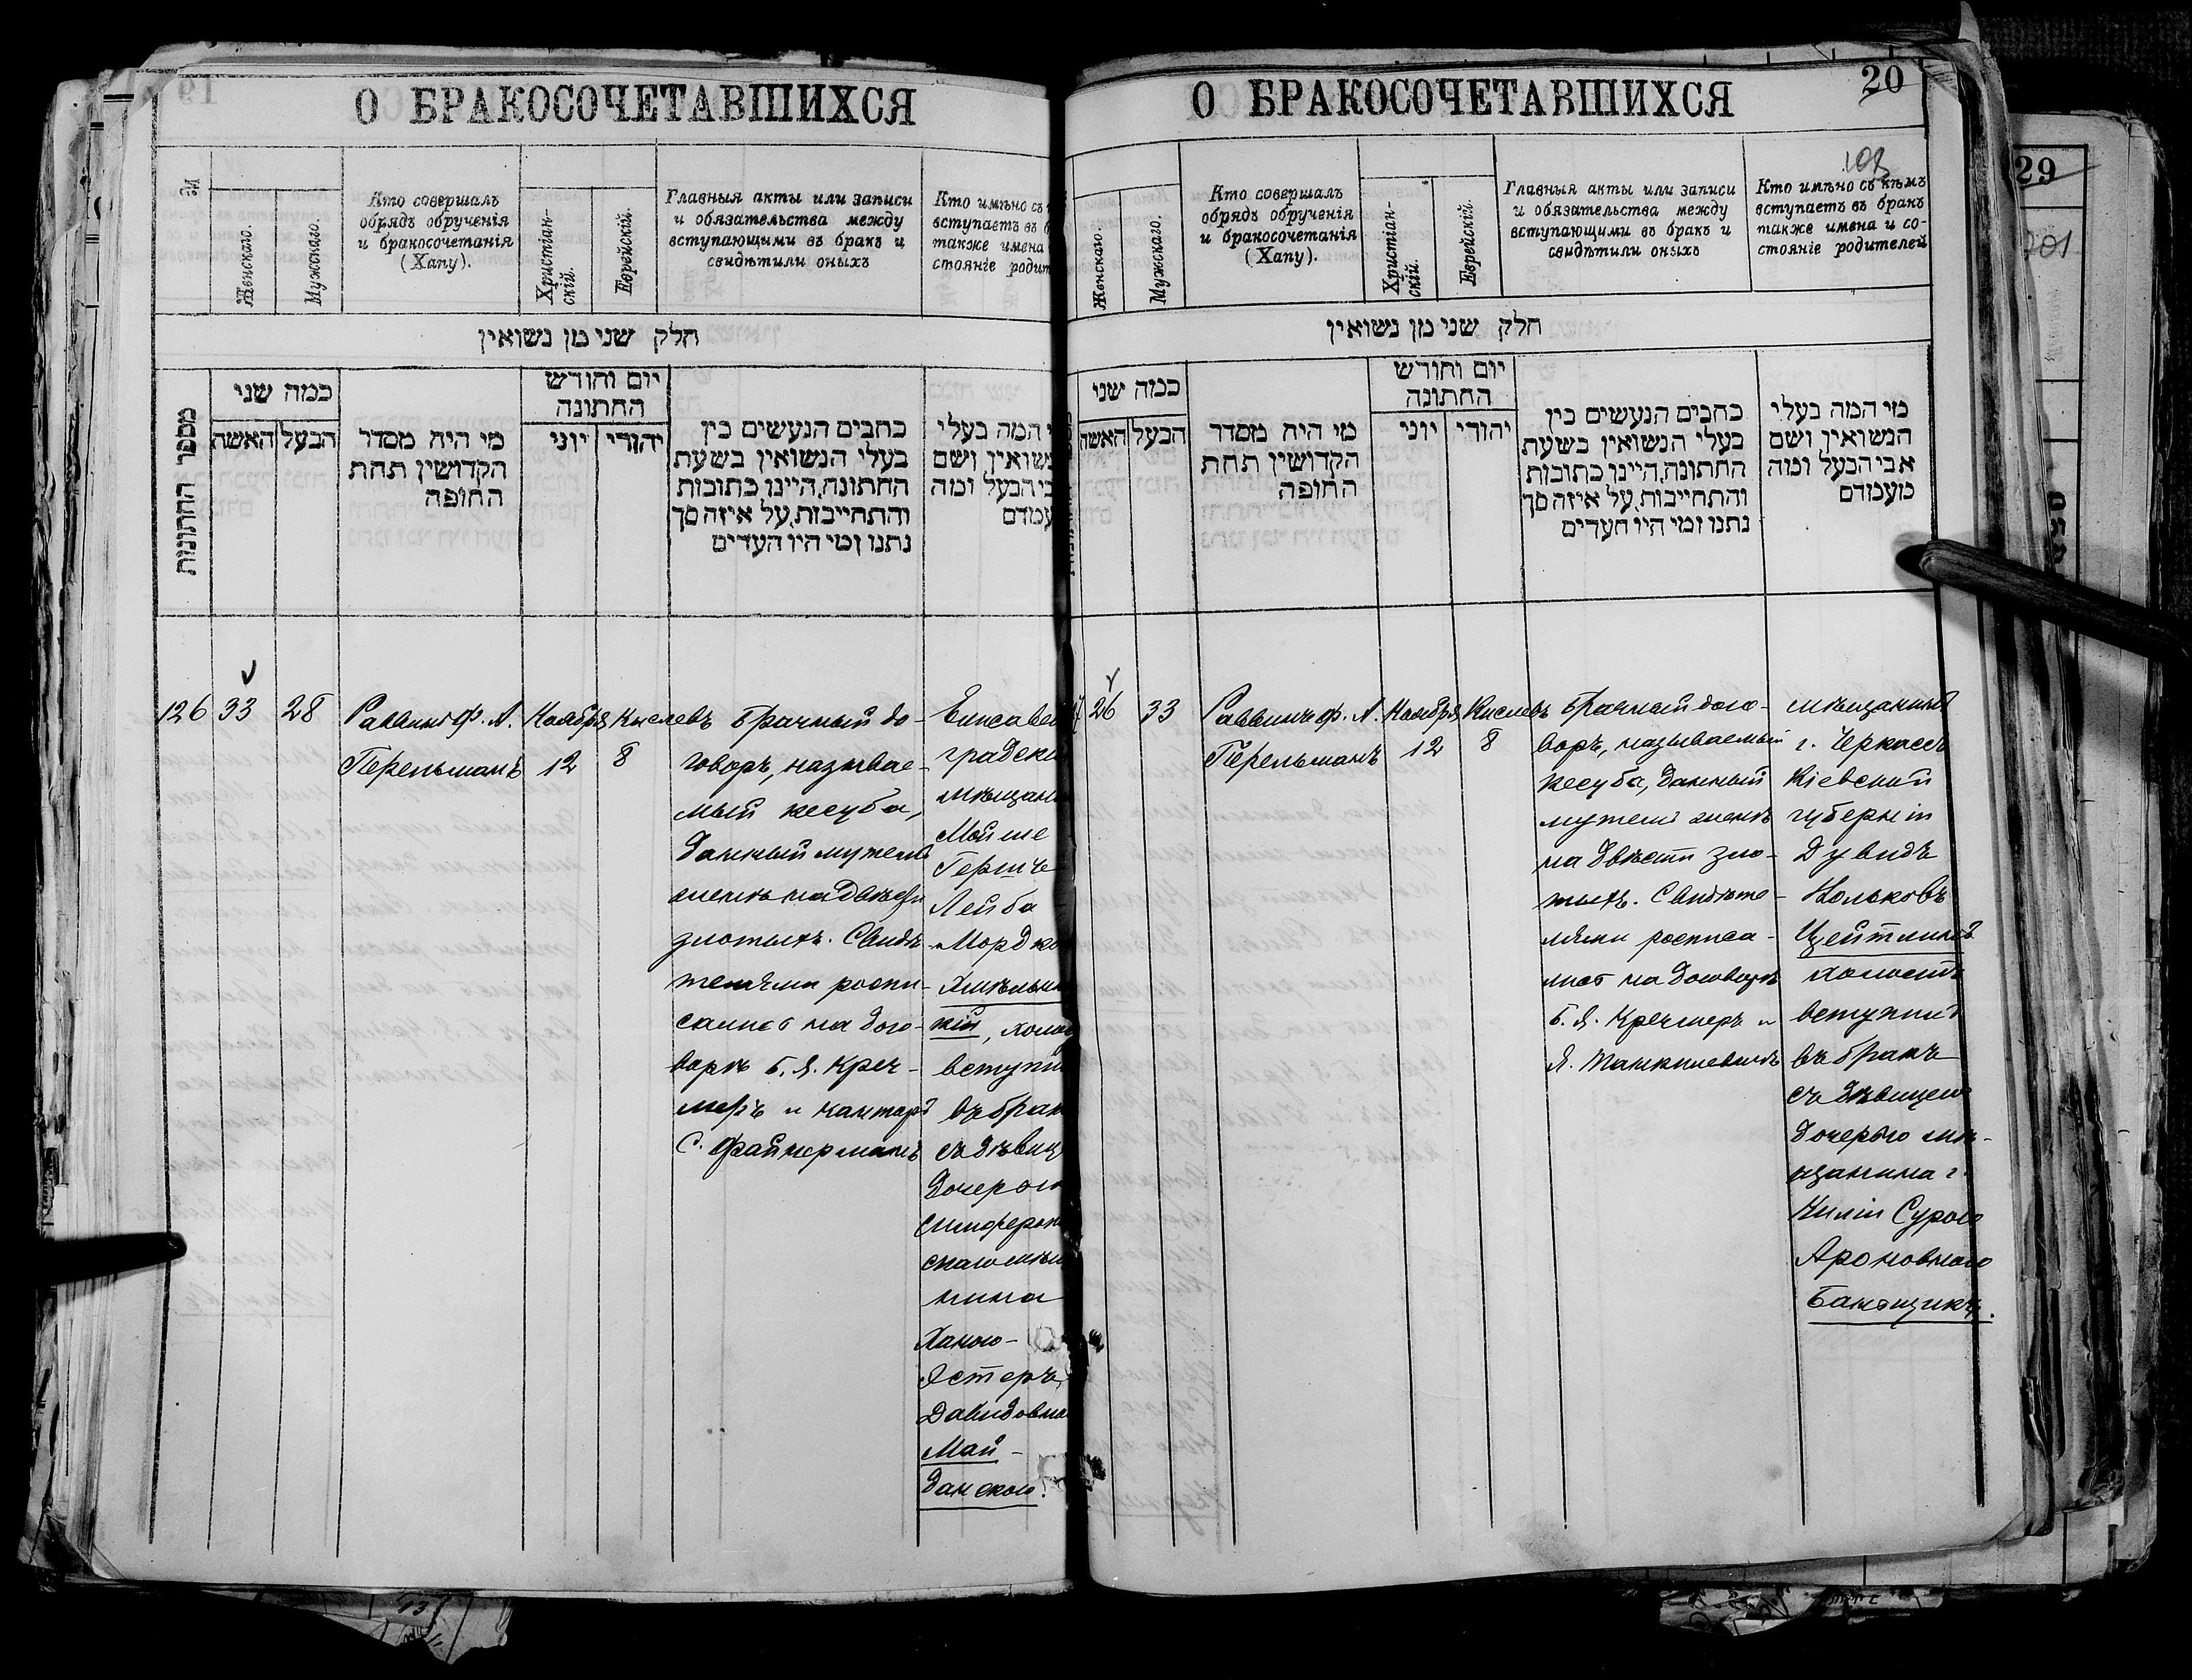 О БРАКОСОЧЕТАВШИХСЯ
№
Женскаго.
Мужскаго.
Кто совершалъ
обрядъ обрученія
и бракосочетанія
(Хапу).
Христіан-
скій.
Еврейскій.
Главныя акты или записи
и обязательства между
вступающими въ бракъ и
свидѣтили оныхъ
Кто имѣно съ
вступаетъ въ
также имена
стояніе родит
חלק שני מן נשואין
מספר החתונות
כמה שני
האשה
הבעל
מי היה מסדר
הקדושין תחת
החופה
יום וחודש
החתונה
יוני
יהודי
כתבים הנעשים בין
בעלי הנשואין בשעת
החתונה, היינו כתובות
והתחייבות, על איזה סך
נתנו ומי היו העדים
המה בעלי
נשואין ושם
בי הבעל ומה
עמדם
126
33
28
Раввинъ Ф. А.
Перельманъ
Ноября
12
Кислевъ
8
Брачный до-
говоръ, называе-
мый кесуба,
данный мужемъ
женѣ на двѣсти
злотыхъ. Свидѣ-
телями роспи-
сались на дого-
ворѣ Б. Я. Креч-
меръ и канторъ
С. Файнерманъ
Елисавет
градскі
мѣщани
Мойше
Гершъ
Лейба
Мордко
Хмѣльни
кій, холос
вступи
въ брак
съ дѣвиц
дочерью
симфероп
скаго мѣщ
нина
Ханою-
Эстеръ
Давидовна
Май-
данскою.
О БРАКОСОЧЕТАВШИХСЯ
20
Женскаго.
Мужскаго.
Кто совершалъ
обрядъ обрученія
и бракосочетанія
(Хапу).
Христіан-
скій.
Еврейскій.
Главныя акты или записи
и обязательства между
вступающими въ бракъ и
свидѣтили оныхъ
Кто имѣно съ кѣмъ
вступаетъ въ бракъ
также имена и со-
стояніе родителей
חלק שני מן נשואין
כמה שני
האשה
הבעל
מי היה מסדר
הקדושין תחת
החופה
יום וחודש
החתונה
יוני
יהודי
כתבים הנעשים בין
בעלי הנשואין בשעת
החתונה, היינו כתובות
והתחייבות, על איזה סך
נתנו ומי היו העדים
מי המה בעלי
הנשואין ושם
אבי הבעל ומה
מעמדם
7
26
33
Раввинъ Ф. А.
Перельманъ
Ноября
12
Кислевъ
8
Брачный дого-
воръ, называемый
кесуба, данный
мужемъ женѣ
на двѣсти зло-
тыхъ. Свидѣте-
лями росписа-
лись на договорѣ
Б. Я. Кречмеръ и
Я.
мѣщанинъ
г. Черкассъ
Кіевской
губерніи
Дувидъ
Вольковъ
Цейтлинъ
холостъ
вступилъ
въ бракъ
съ дѣвицею
дочерью мѣ-
щанина г.
Киліи Сурою
Ароновною
Банощикъ.
29
101